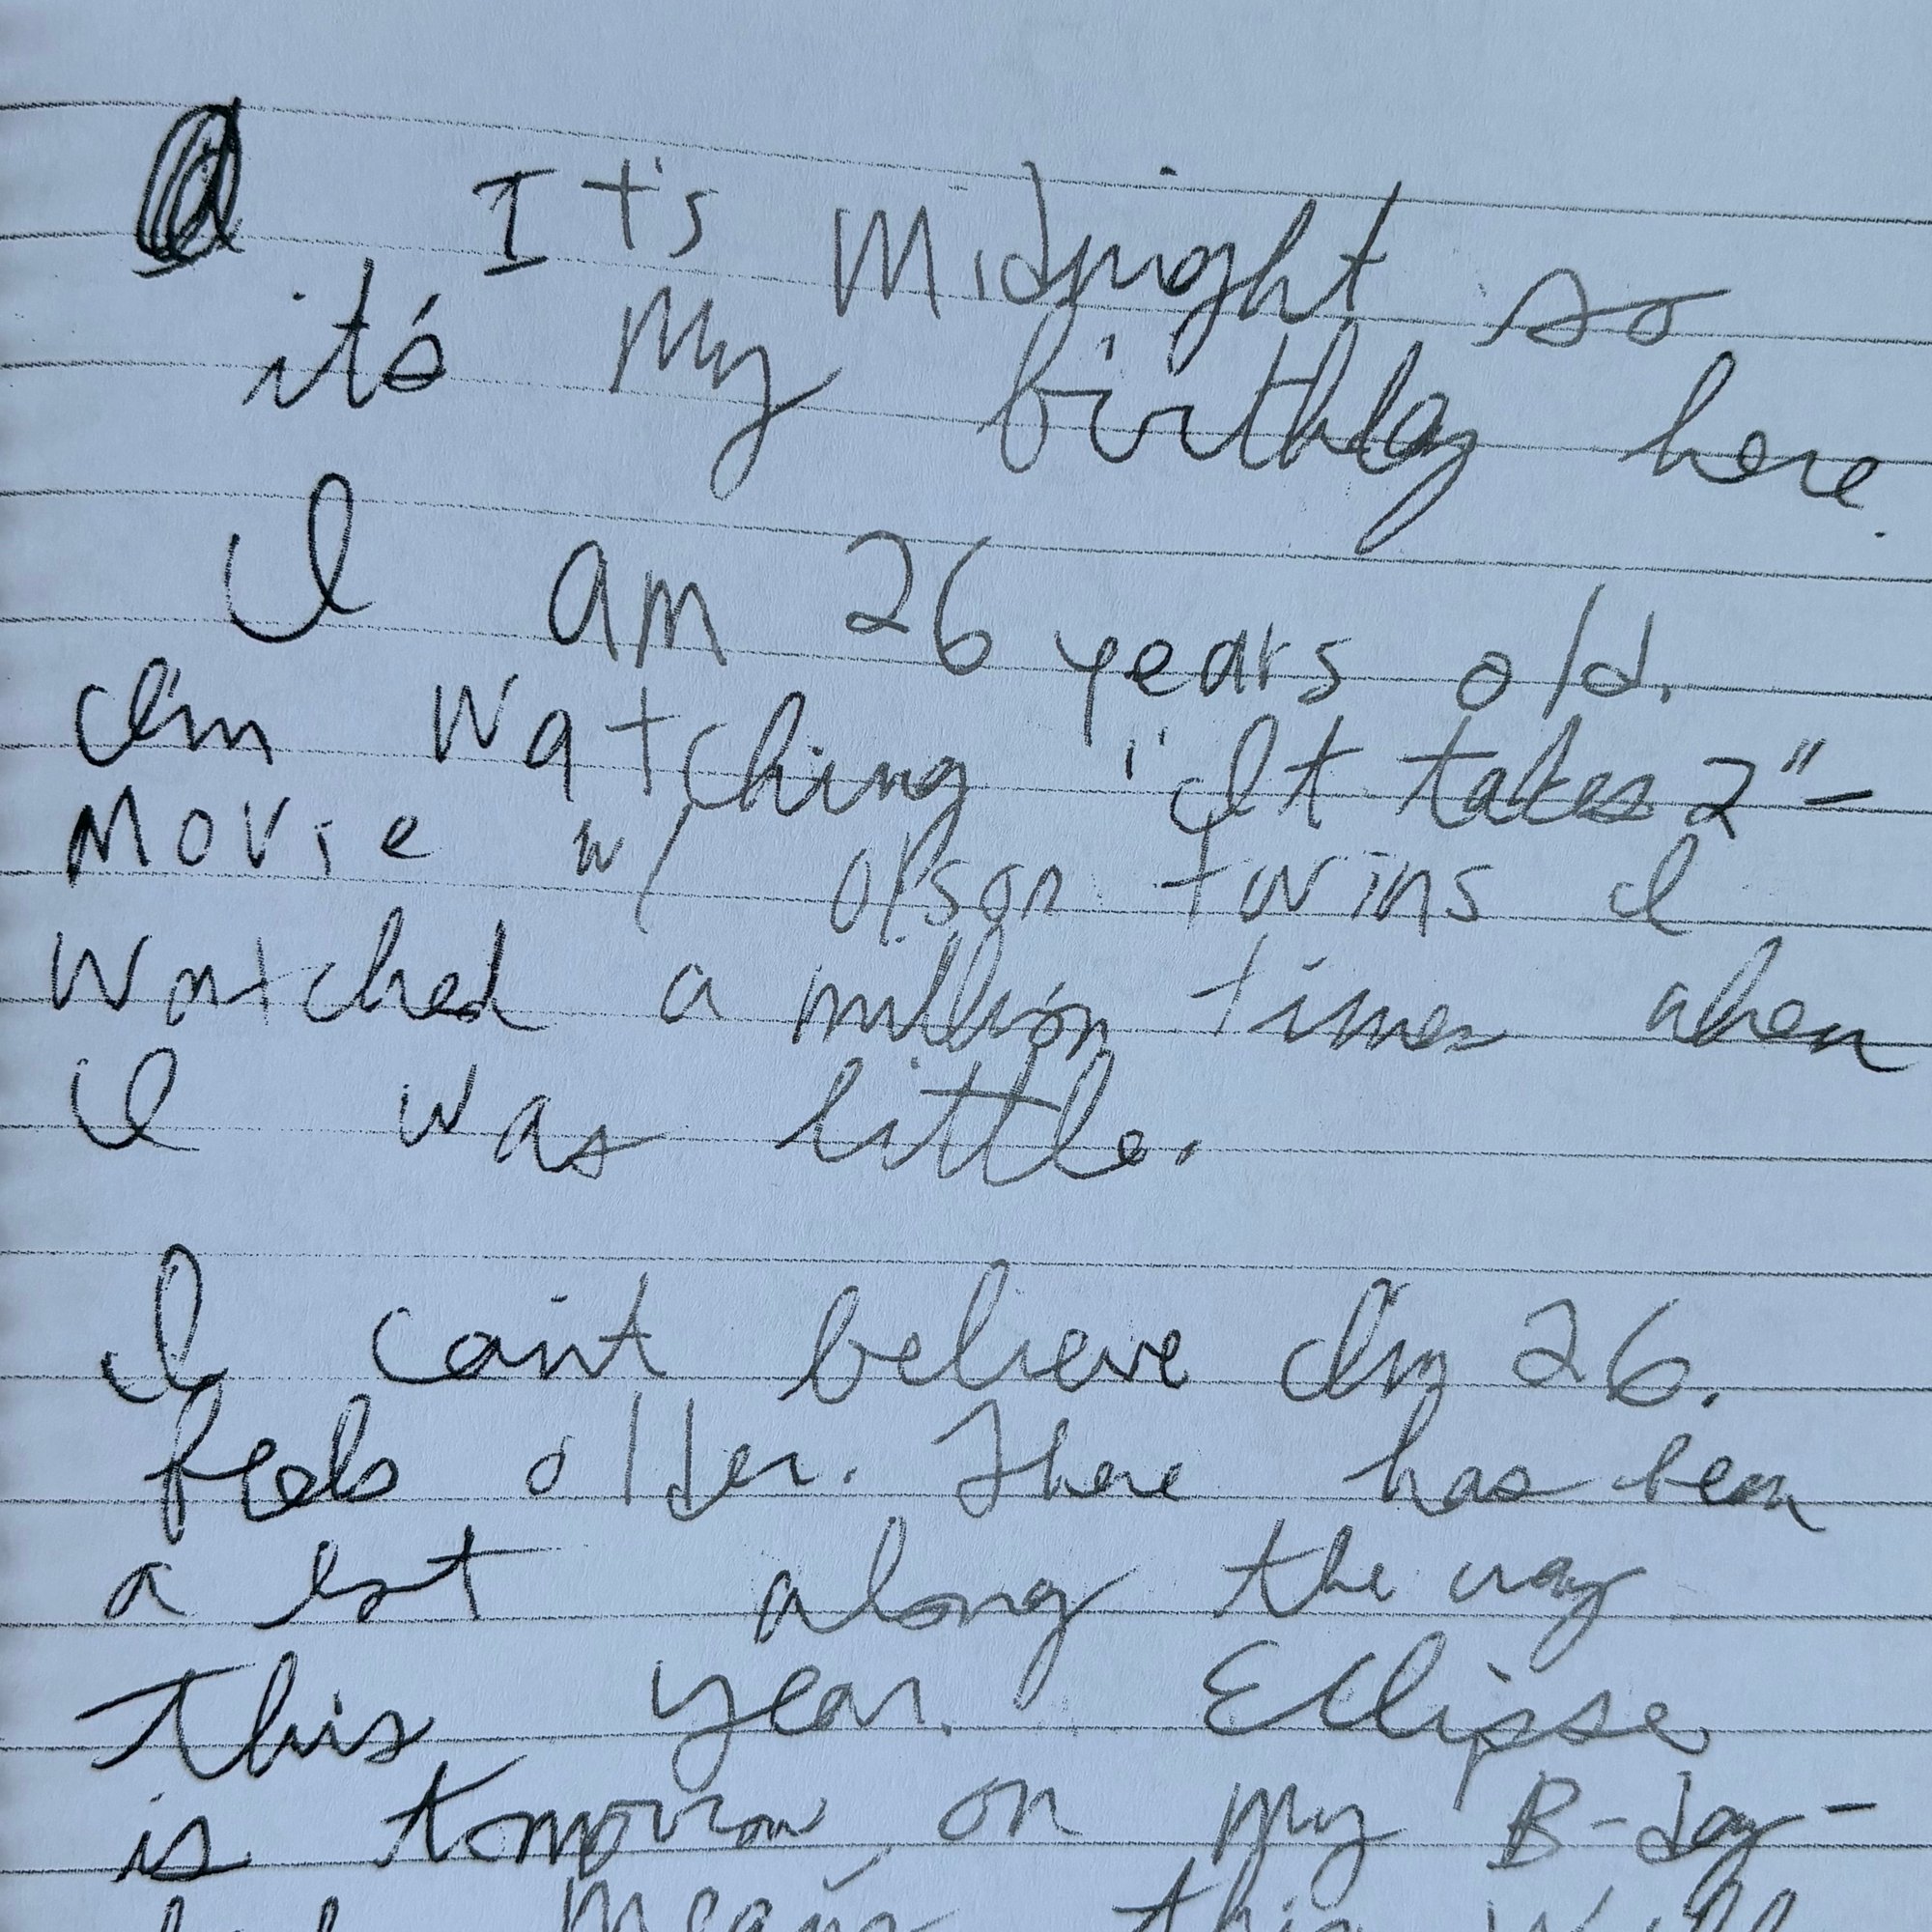 It's Midnight so
it's my birthday here.
I am 26 years old.
I'm watching "It takes 2" -
Movie w/ olson twins I
watched a million times when
I was little.
I can't believe I'm 26.
feels older. There has been
a lot along the way
this year. Eclipse
is tomorrow on my B-day -
means this will